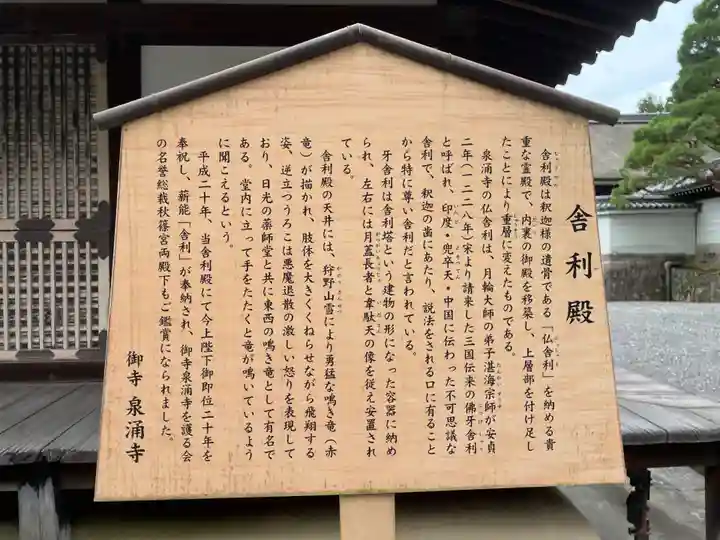 舎利殿
舎利殿は釈迦様の遺骨である「仏舎利」を納める貴
重な霊殿で、内裏の御殿を移築し、上層部を付け足し
たことにより重層に変えたものである。
泉涌寺の仏舎利は、月輪大師の弟子湛海宗師が安貞
二年(一二二八年)宋より請来した三国伝来の佛牙舎利
と呼ばれ、印度・兜率天・中国に伝わった不可思議な
舎利で、釈迦の歯にあたり、説法をされる口に有ること
から特に尊い舎利だと言われている。
牙舎利は舎利塔という建物の形になった容器に納め
られ、左右には月蓋長者と韋駄天の像を従え安置され
ている。
舎利殿の天井には、狩野山雪により勇猛な鳴き竜(赤
竜)が描かれ、肢体を大きくくねらせながら飛翔する
姿、逆立つうろこは悪魔退散の激しい怒りを表現して
おり、日光の薬師堂と共に東西の鳴き竜として有名で
ある。堂内に立って手をたたくと竜が鳴いているよう
に聞こえるという。
平成二十年、当舎利殿にて今上陛下御即位二十年を
奉祝し、薪能「舎利」が奉納され、御寺泉涌寺を護る会
の名誉総裁秋篠宮両殿下もご鑑賞になられました。
御寺 泉涌寺